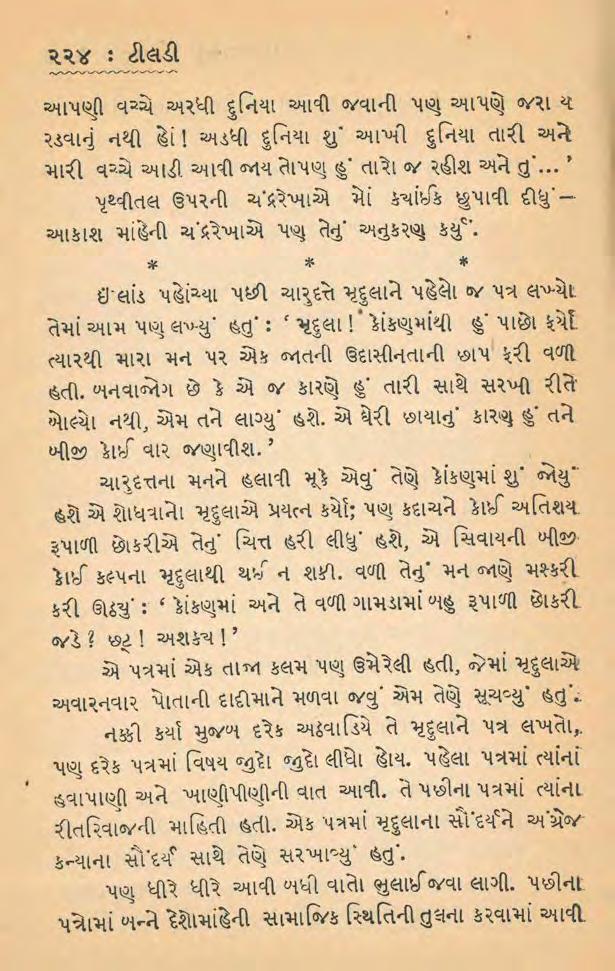 ૨૨૪ : ટીલડી
આપણી વચ્ચે અરધી દુનિયા આવી જવાની પણ આપણે જરા ય
રડવાનું નથી હોં! અડધી દુનિયા શું આખી દુનિયા તારી અને
મારી વચ્ચે આડી આવી જાય તોપણ હું તારો જ રહીશ અને તું...’
પૃથ્વીતલ ઉપરની ચંદ્રરેખાએ મોં કયાંઈક છુપાવી દીધું—
આકાશ માંહેની ચંદ્રરેખાએ પણ તેનું અનુકરણ કર્યું.
* * *
ઇંલાંડ પહોંચ્યા પછી ચારુદત્તે મૃદુલાને પહેલો જ પત્ર લખ્યો
તેમાં આમ પણ લખ્યું હતું : ‘ મૃદુલા ! કોંકણમાંથી હું પાછો ફર્યો
ત્યારથી મારા મન પર એક જાતની ઉદાસીનતાની છાપ ફરી વળી
હતી. બનવાજોગ છે કે એ જ કારણે હું તારી સાથે સરખી રીતે
બોલ્યો નથી, એમ તને લાગ્યું હશે. એ ઘેરી છાયાનું કારણ હું તને
બીજી કોઈ વાર જણાવીશ.’
ચારુદત્તના મનને હલાવી મૂકે એવું તેણે કોંકણમાં શું જોયું
હશે એ શોધવાનો મૃદુલાએ પ્રયત્ન કર્યો; પણ કદાચને કોઈ અતિશય
રૂપાળી છોકરીએ તેનું ચિત્ત હરી લીધું હશે, એ સિવાયની બીજી
કોઈ કલ્પના મૃદુલાથી થઈ ન શકી. વળી તેનું મન જાણે મશ્કરી
કરી ઊઠયું : ‘ કોંકણમાં અને તે વળી ગામડામાં બહુ રૂપાળી છોકરી
જડે ? છટ્ ! અશકય !’
એ પત્રમાં એક તાજા કલમ પણ ઉમેરેલી હતી, જેમાં મૃદુલાએ
અવારનવાર પોતાની દાદીમાને મળવા જવું એમ તેણે સૂચવ્યું હતું.
નક્કી કર્યા મુજબ દરેક અઠવાડિયે તે મૃદુલાને પત્ર લખતો,
પણ દરેક પત્રમાં વિષય જુદો જુદો લીધો હોય. પહેલા પત્રમાં ત્યાંનાં
હવાપાણી અને ખાણીપીણીની વાત આવી. તે પછીના પત્રમાં ત્યાંના
રીતરિવાજની માહિતી હતી. એક પત્રમાં મૃદુલાના સૌંદર્યને અંગ્રેજ
કન્યાના સૌંદર્ય સાથે તેણે સરખાવ્યું હતું.
પણ ધીરે ધીરે આવી બધી વાતો ભુલાઈ જવા લાગી. પછીના
પત્રોમાં બન્ને દેશોમાંહેની સામાજિક સ્થિતિની તુલના કરવામાં આવી